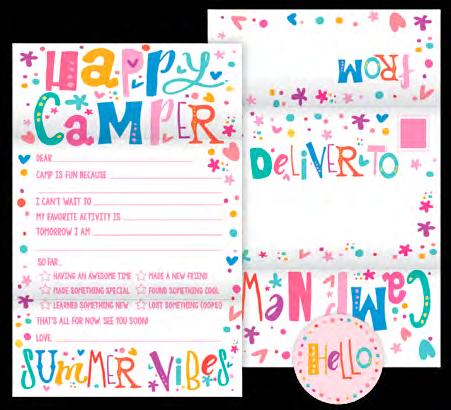 Happy
CaMPER
DEAR
CAMP IS FUN BECAUSE
I CAN'T WAIT TO
MY FAVORITE ACTIVITY IS
TOMORROW I AM
SO FAR...
HAVING AN AWESOME TIME MADE A NEW FRIEND
MADE SOMETHING SPECIAL FOUND SOMETHING COOL
LEARNED SOMETHING NEW LOST SOMETHING (OOPS!)
THAT'S ALL FOR NOW, SEE YOU SOON!
LOVE
SUMMER VIBES
FROM
DELIVER TO
CAMP MAIL
HELLO